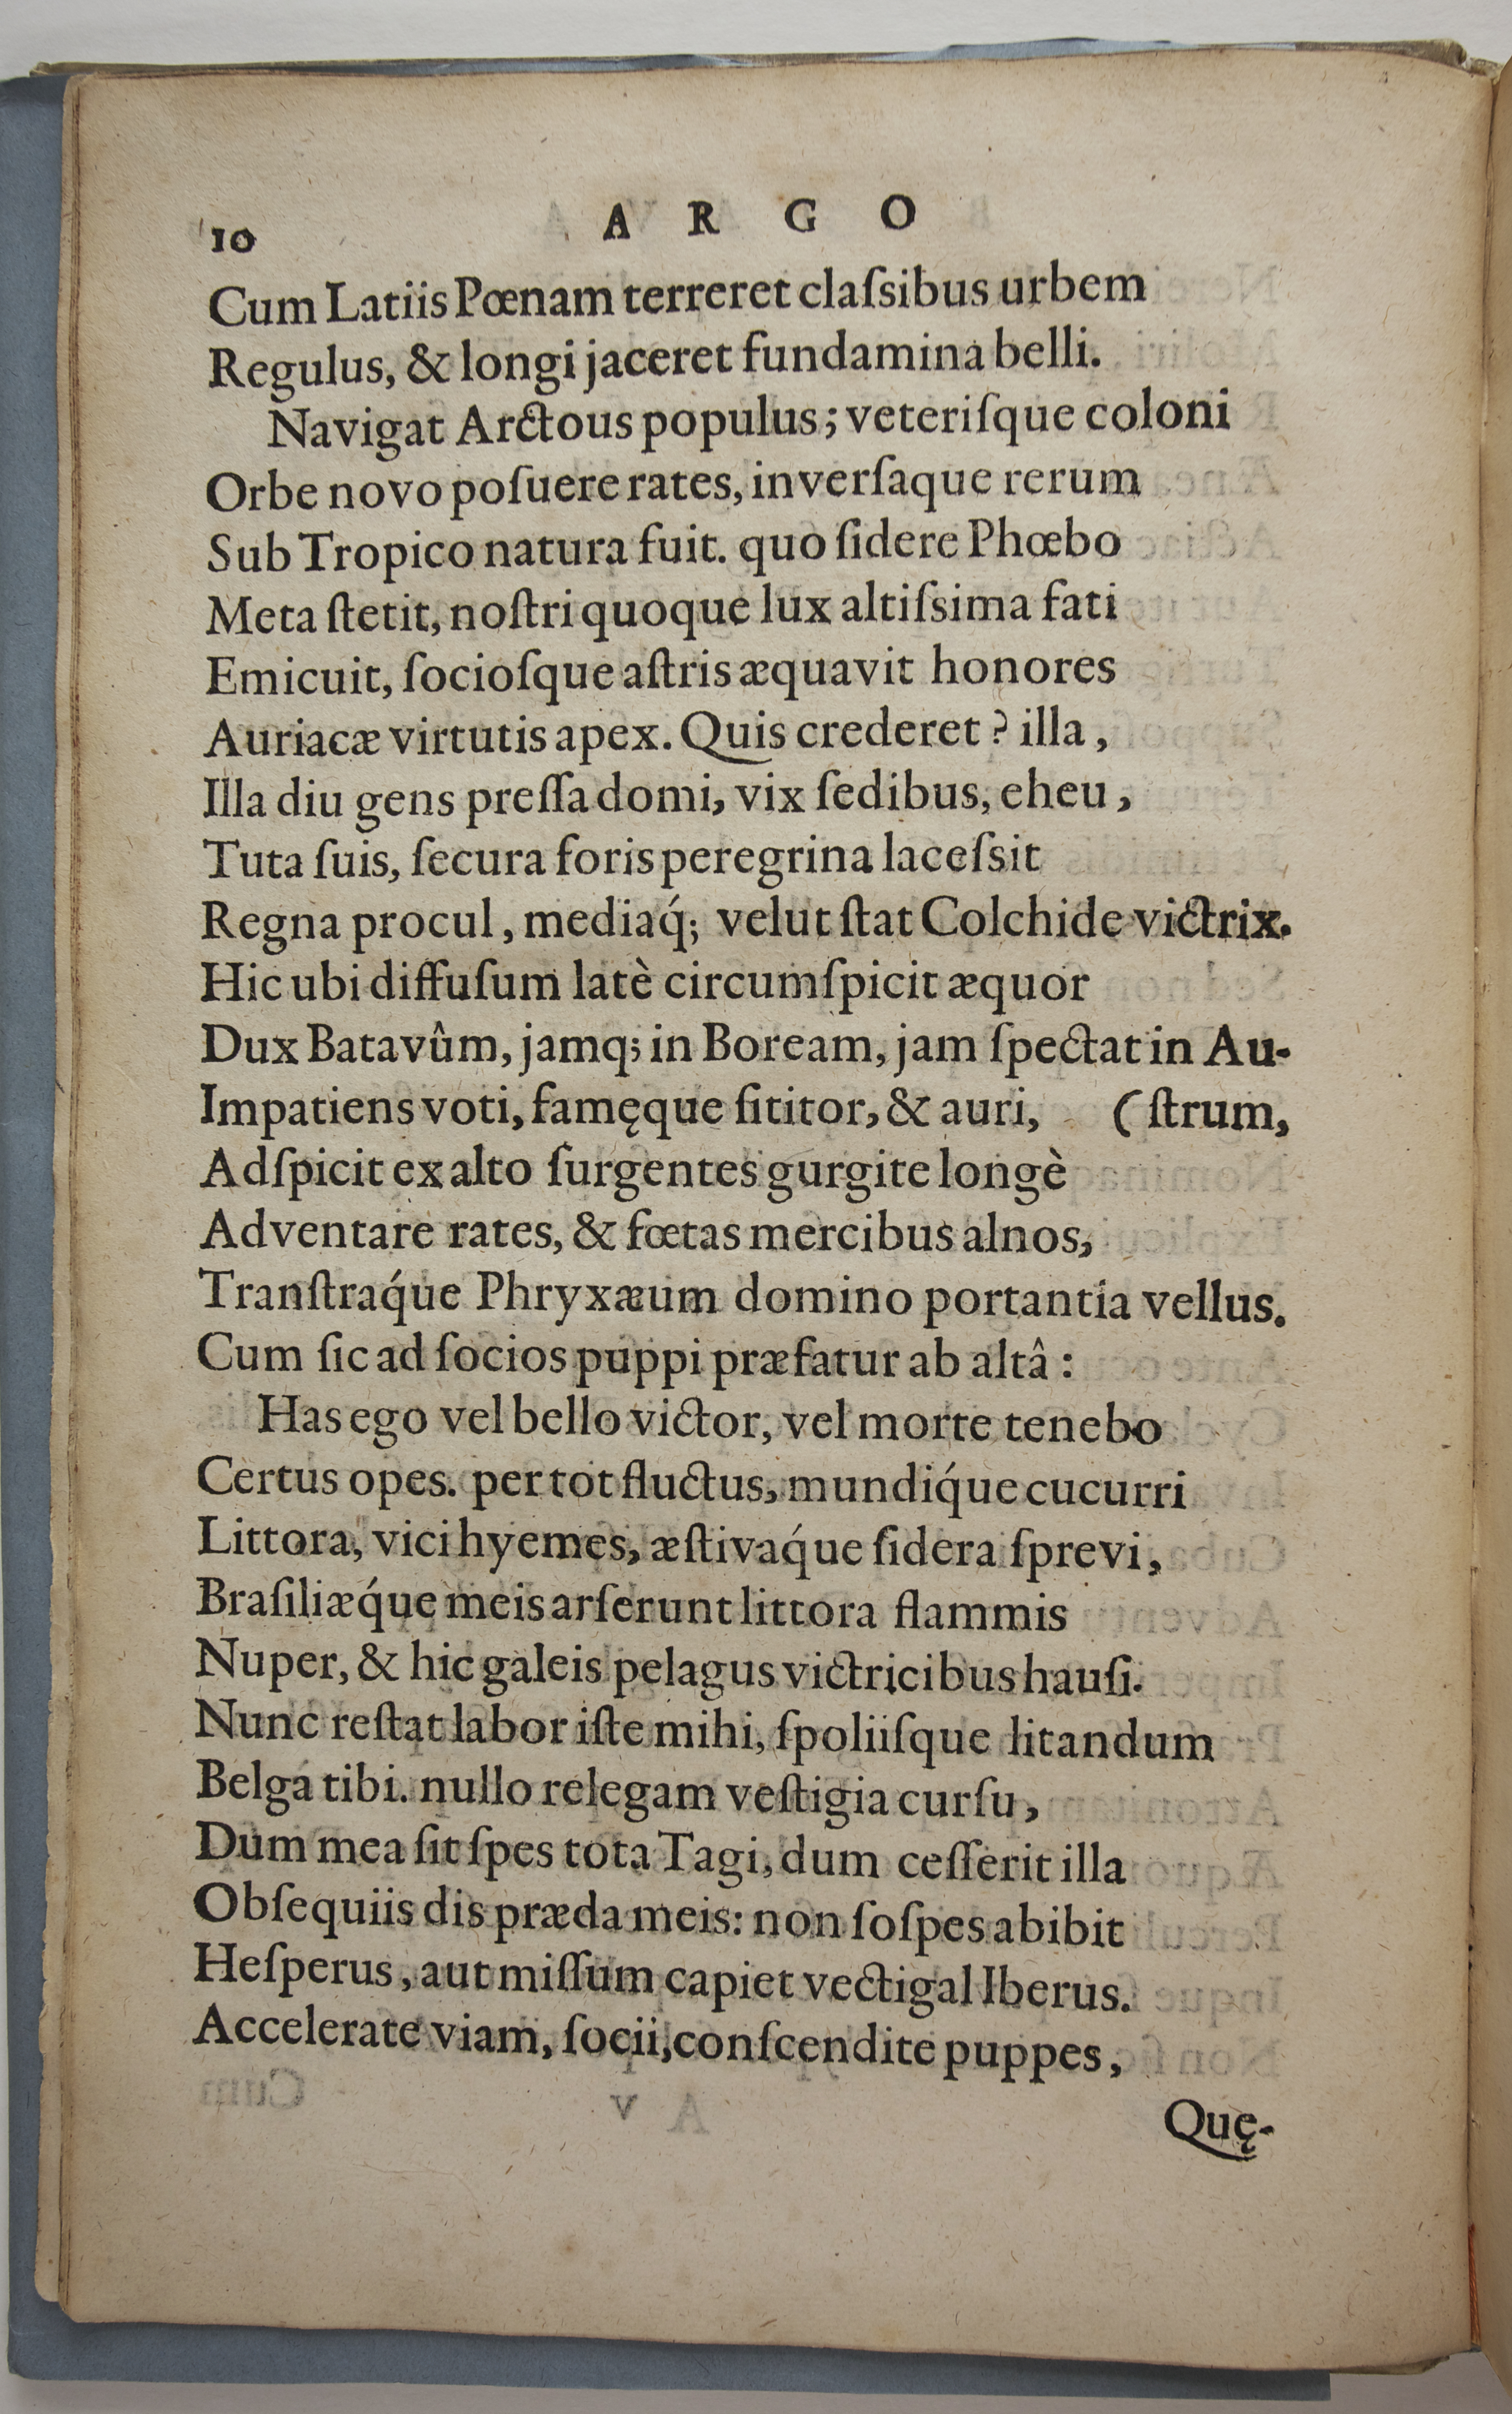 10
A R G O
Cum Latiis Pœnam terreret claſsibus urbem
Regulus, & longi jaceret fundamina belli.
Navigat Arctous populus; veteriſque coloni
Orbe novo poſuere rates, inverſaque rerum
Sub Tropico natura fuit. quo ſidere Phœbo
Meta ſtetit, noſtri quoque lux altiſsima fati
Emicuit, ſocioſque aſtris æquavit honores
Auriacæ virtutis apex. Quis crederet? illa,
Illa diu gens preſſa domi, vix ſedibus, eheu,
Tuta ſuis, ſecura foris peregrina laceſsit
Regna procul, mediaq́; velut ſtat Colchide victrix.
Hic ubi diffuſum latè circumſpicit æquor
Dux Batavûm, jamq; in Boream, jam ſpectat in Au-
Impatiens voti, famęque ſititor, & auri, (ſtrum,
Adſpicit ex alto ſurgentes gurgite longè
Adventare rates, & fœtas mercibus alnos,
Tranſtraq́ue Phryxæum domino portantia vellus.
Cum ſic ad ſocios puppi præfatur ab altâ:
Has ego vel bello victor, vel morte tenebo
Certus opes. per tot fluctus, mundiq́ue cucurri
Littora, vici hyemes, æſtivaq́ue ſidera ſprevi,
Braſiliæq́ue meis arſerunt littora flammis
Nuper, & hic galeis pelagus victricibus hauſi.
Nunc reſtat labor iſte mihi, ſpoliiſque litandum
Belga tibi. nullo relegam veſtigia curſu,
Dum mea ſit ſpes tota Tagi, dum ceſſerit illa
Obſequiis dis præda meis: non ſoſpes abibit
Heſperus, aut miſſum capiet vectigal Iberus.
Accelerate viam, ſocii, conſcendite puppes,
Quę-